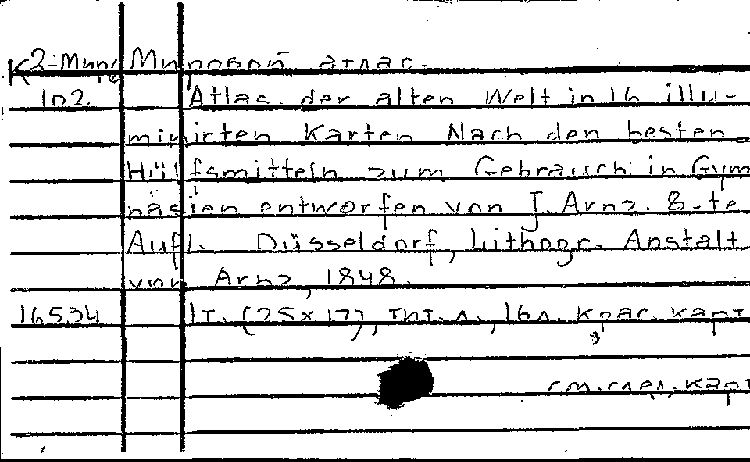 К2-Мир Мировой атлас.
102. Atlas der alten Welt in 16 illu-
minirten Karten Nach den besten
Hülfsmitteln zum Gebrauch in Gym
näsien entworfen von J. Arnz. 8-te
Aufl. Düsseldorf, Lithogr. Anstalt
von Arnz, 1848.
16534 1т. (25×17), тит. л., 16 л. крас. карт
см. след. карт